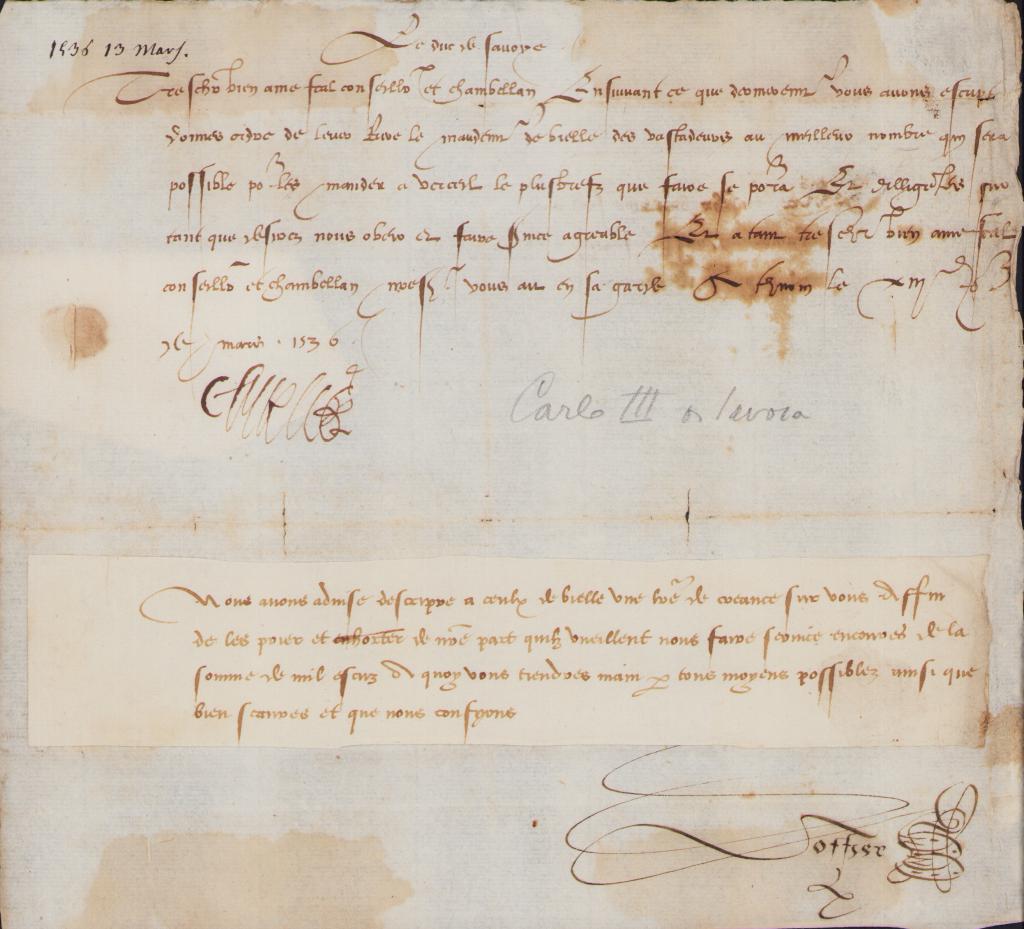 1536 13 Mars.
Le duc de Savoye
Tres chr bien ame feal conseillr et chambellan Ensuivant ce que vous avons escript
donnes ordre de lever le mandemt de bielle des vastadeurs au meilleur nombre quil sera
possible por les mander a verceil le plustbrefz que faire se porra Et
tant que desirez nous obeir et faire svice agreable Et a tant tres chr bien ame feal
conseillr et chambellan vous ait en sa garde le xiij
de mars 1536
Carlo III di Savoia
Nous avons advise descripre a ceulx de bielle une lre de creance sur vous Affin
de les prier et enhorter de nre part quilz vueillent nous faire service encoures de la
somme de mil escuz A quoy vous tiendres main p tous moyens possiblez ainsi que
bien scaures et que nous confyons